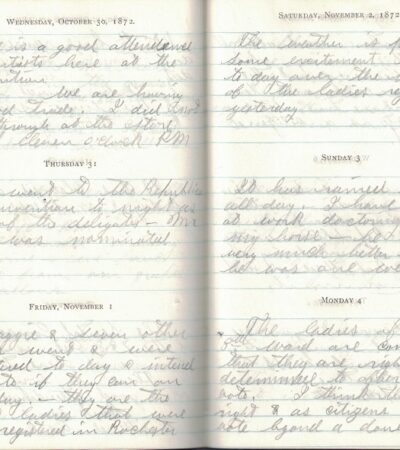 Wednesday, October 30, 1872.
e is a good attendence
tists here at the
ntion
We are having
od trade. I did not
through at the store
eleven oclock P.M
Thursday 31
went to the Republi
nvention to night as
of the deligates - Mr
was nominated
Friday, November 1
aggie & seven other
went & were
tered to day & intend
te if they can on
day, - they are the
ladies that were
registered in Rochester
Saturday, November 2, 1872
The weather is
Some excitement
to day over the
of the ladies re
yesterday
Sunday 3
It has rained
all day. I have
at work doctoring
my horse - he
very much better
he was one eve
Monday 4
The ladies of
8th Ward are con
that they are righ
determined to offer
vote. I think the
right & as citizens
vote byond a dou